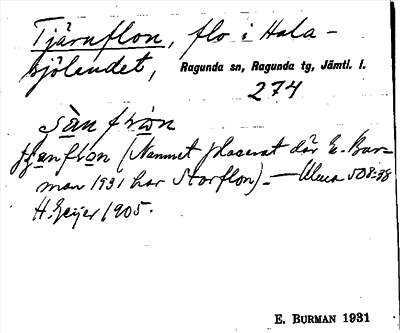 Tjärnflon, flo i Hala-
sjölandet, Ragunda sn, Ragunda tg, Jämtl. l.
274
(Namnet placerat där E. Bur-
man 1931 har Storflon). — 508:38
H. Geijer 1905.
E. BURMAN 1931